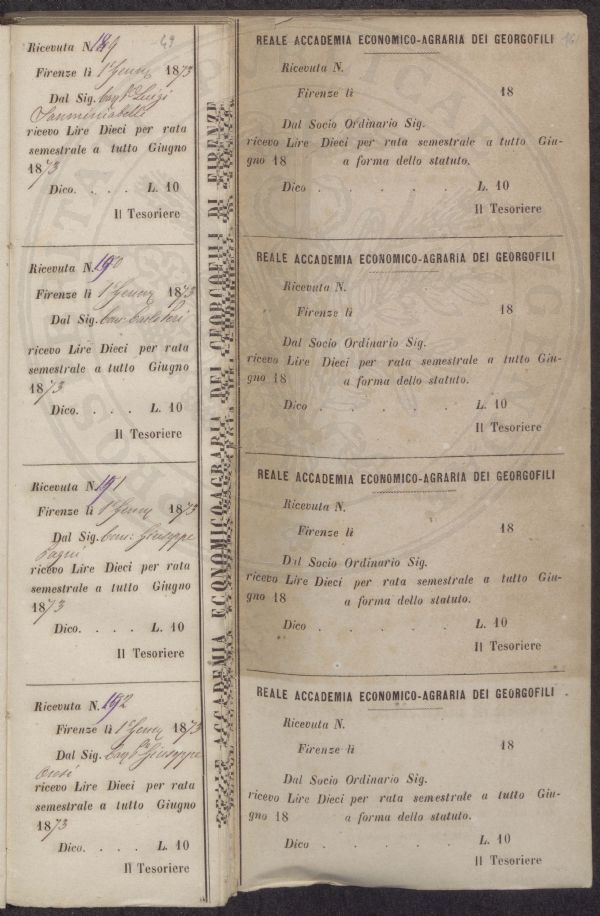 Ricevuta N. 189
49
Firenze li 1° Genn 1873
Dal Sig. Luigi
ricevo Lire Dieci per rata
semestrale a tutto Giugno
1873
Dico. . . . L. 10
Il Tesoriere
Ricevuta N. 190
Firenze li 1° Genn 1873
Dal Sig. Cav.
ricevo Lire Dieci per rata
semestrale a tutto Giugno
1873
Dico. . . . L. 10
Il Tesoriere
Ricevuta N. 191
Firenze li 1° Genn 1873
Dal Sig. Giuseppe
Pagni
ricevo Lire Dieci per rata
semestrale a tutto Giugno
1873
Dico. . . . L. 10
Il Tesoriere
Ricevuta N. 192
Firenze li 1° Genn 1873
Dal Sig. Giuseppe
ricevo Lire Dieci per rata
semestrale a tutto Giugno
1873
Dico. . . . L. 10
Il Tesoriere
REALE ACCADEMIA ECONOMICO-AGRARIA DEI GEORGOFILI DI FIRENZE
REALE ACCADEMIA ECONOMICO-AGRARIA DEI GEORGOFILI
Ricevuta N.
Firenze lì 18
Dal Socio Ordinario Sig.
ricevo Lire Dieci per rata semestrale a tutto Giu-
gno 18 a forma dello statuto.
Dico . . . . . L. 10
Il Tesoriere
REALE ACCADEMIA ECONOMICO-AGRARIA DEI GEORGOFILI
Ricevuta N.
Firenze lì 18
Dal Socio Ordinario Sig.
ricevo Lire Dieci per rata semestrale a tutto Giu-
gno 18 a forma dello statuto.
Dico . . . . . L. 10
Il Tesoriere
REALE ACCADEMIA ECONOMICO-AGRARIA DEI GEORGOFILI
Ricevuta N.
Firenze lì 18
Dal Socio Ordinario Sig.
ricevo Lire Dieci per rata semestrale a tutto Giu-
gno 18 a forma dello statuto.
Dico . . . . . L. 10
Il Tesoriere
REALE ACCADEMIA ECONOMICO-AGRARIA DEI GEORGOFILI
Ricevuta N.
Firenze lì 18
Dal Socio Ordinario Sig.
ricevo Lire Dieci per rata semestrale a tutto Giu-
gno 18 a forma dello statuto.
Dico . . . . . L. 10
Il Tesoriere